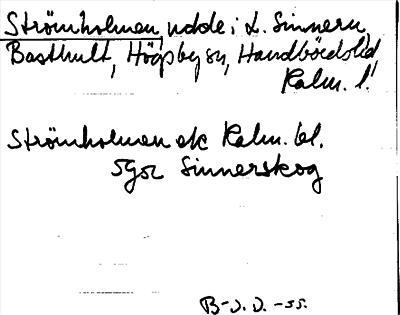 Strömholmen, udde i L. Sinnern,
Basthult, Högsby sn, Handbörds hd,
Kalm. l.
Strömholmen ek Kalm. bl.
5g5c Sinnerskog
B-J. J. -55.